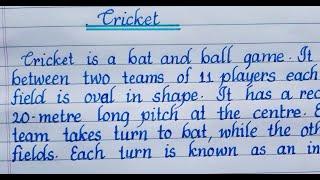 Cricket
Cricket is a bat and ball game. It
between two teams of 11 players each
field is oval in shape. It has a rec
20-metre long pitch at the centre. E
team takes turn to bat, while the oth
fields. Each turn is known as an in